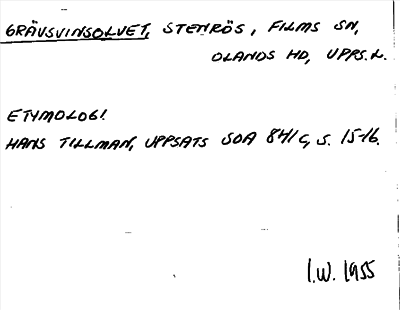 GRÄVSVINSOLVET, STENRÖS, FILMS SN,
OLANDS HD, UPPS. L.
ETYMOLOGI
HANS TILLMAN, UPPSATS SOA 841C, S. 15-16.
I.W. 1955